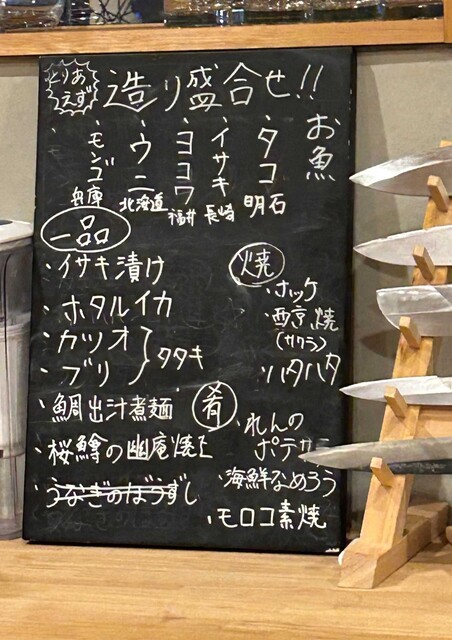 とりあえず
造り盛合せ!!
お魚
・タコ 明石
・イサキ 長崎
・ヨコワ 福井
・ウニ 北海道
・モンゴ 兵庫
一品
・イサキ漬け
・ホタルイカ
・カツオ
・ブリ
タタキ
・鯛出汁煮麺
・桜鱒の幽庵焼き
・うなぎのぼうずし
焼
・ホッケ
・西京焼
(サワラ)
・ハタハタ
肴
・れんの
ポテサラ
・海鮮なめろう
・モロコ素焼